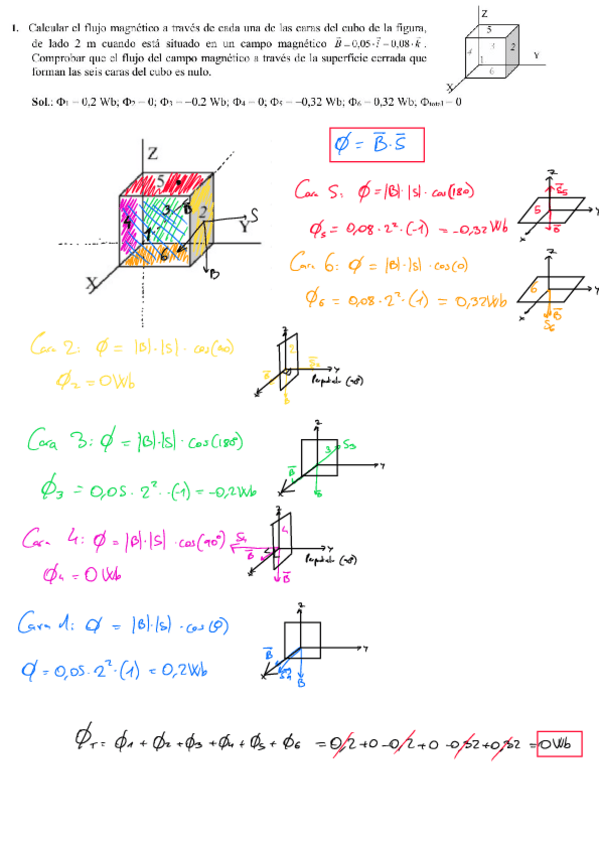 1. Calcular el flujo magnético a través de cada una de las caras del cubo de la figura,
de lado 2 m cuando está situado en un campo magnético B̄=0,05·ī−0,08·k̄.
Comprobar que el flujo del campo magnético a través de la superficie cerrada que
forman las seis caras del cubo es nulo.
Z
5
4 3 2
Y
1
6
X
Sol.: Φ1 = 0,2 Wb; Φ2 = 0; Φ3 = −0.2 Wb; Φ4 = 0; Φ5 = −0,32 Wb; Φ6 = 0,32 Wb; Φtotal = 0
Φ = B̄·S̄
Z
5
3 B
4 2 S
1 Y
6
X B
Cara 5: Φ = |B|·|S|·cos(180)
Φ5 = 0,08·2²·(-1) = -0,32 Wb
z
S5
5 y
B
x
Cara 6: Φ = |B|·|S|·cos(0)
Φ6 = 0,08·2²·(1) = 0,32 Wb
z
6 y
B
x S6
Cara 2: Φ = |B|·|S|·cos(90)
Φ2 = 0 Wb
z
2
y
B
(90º)
Cara 3: Φ = |B|·|S|·cos(180)
Φ3 = 0,05·2²·(-1) = -0,2 Wb
z
3 S3
B y
x
Cara 4: Φ = |B|·|S|·cos(90º)
Φ4 = 0 Wb
z
4
S4 y
B
B̄
(90º)
Cara 1: Φ = |B|·|S|·cos(0)
Φ = 0,05·2²·(1) = 0,2 Wb
z
B̄ y
x
B
ΦT = Φ1 + Φ2 + Φ3 + Φ4 + Φ5 + Φ6 = 0,2+0-0,2+0-0,32+0,32 = 0 Wb